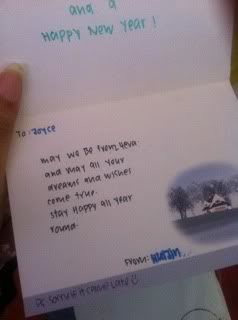 and a
Happy New Year!
To: Joyce
may we be frenz 4eva
and may all your
dreams and wishes
come true.
stay Happy all year
round.
From:
Ps. sorry if it came late